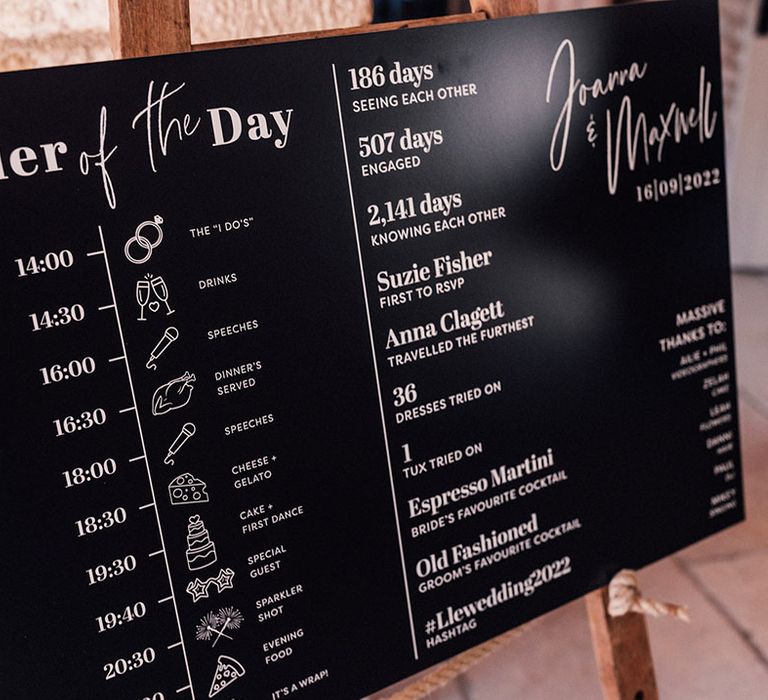 of the Day
14:00 THE "I DO'S"
14:30 DRINKS
16:00 SPEECHES
16:30 DINNER'S
SERVED
18:00 SPEECHES
18:30 CHEESE +
GELATO
19:30 CAKE +
FIRST DANCE
19:40 SPECIAL
GUEST
20:30 SPARKLER
SHOT
EVENING
FOOD
IT'S A WRAP!
186 days
SEEING EACH OTHER
507 days
ENGAGED
2,141 days
KNOWING EACH OTHER
Suzie Fisher
FIRST TO RSVP
Anna Clagett
TRAVELLED THE FURTHEST
36
DRESSES TRIED ON
1
TUX TRIED ON
Espresso Martini
BRIDE'S FAVOURITE COCKTAIL
Old Fashioned
GROOM'S FAVOURITE COCKTAIL
#Llewedding2022
HASHTAG
Joanna
& Maxwell
16|09|2022
MASSIVE
THANKS TO:
PHIL
LEAH
PAUL